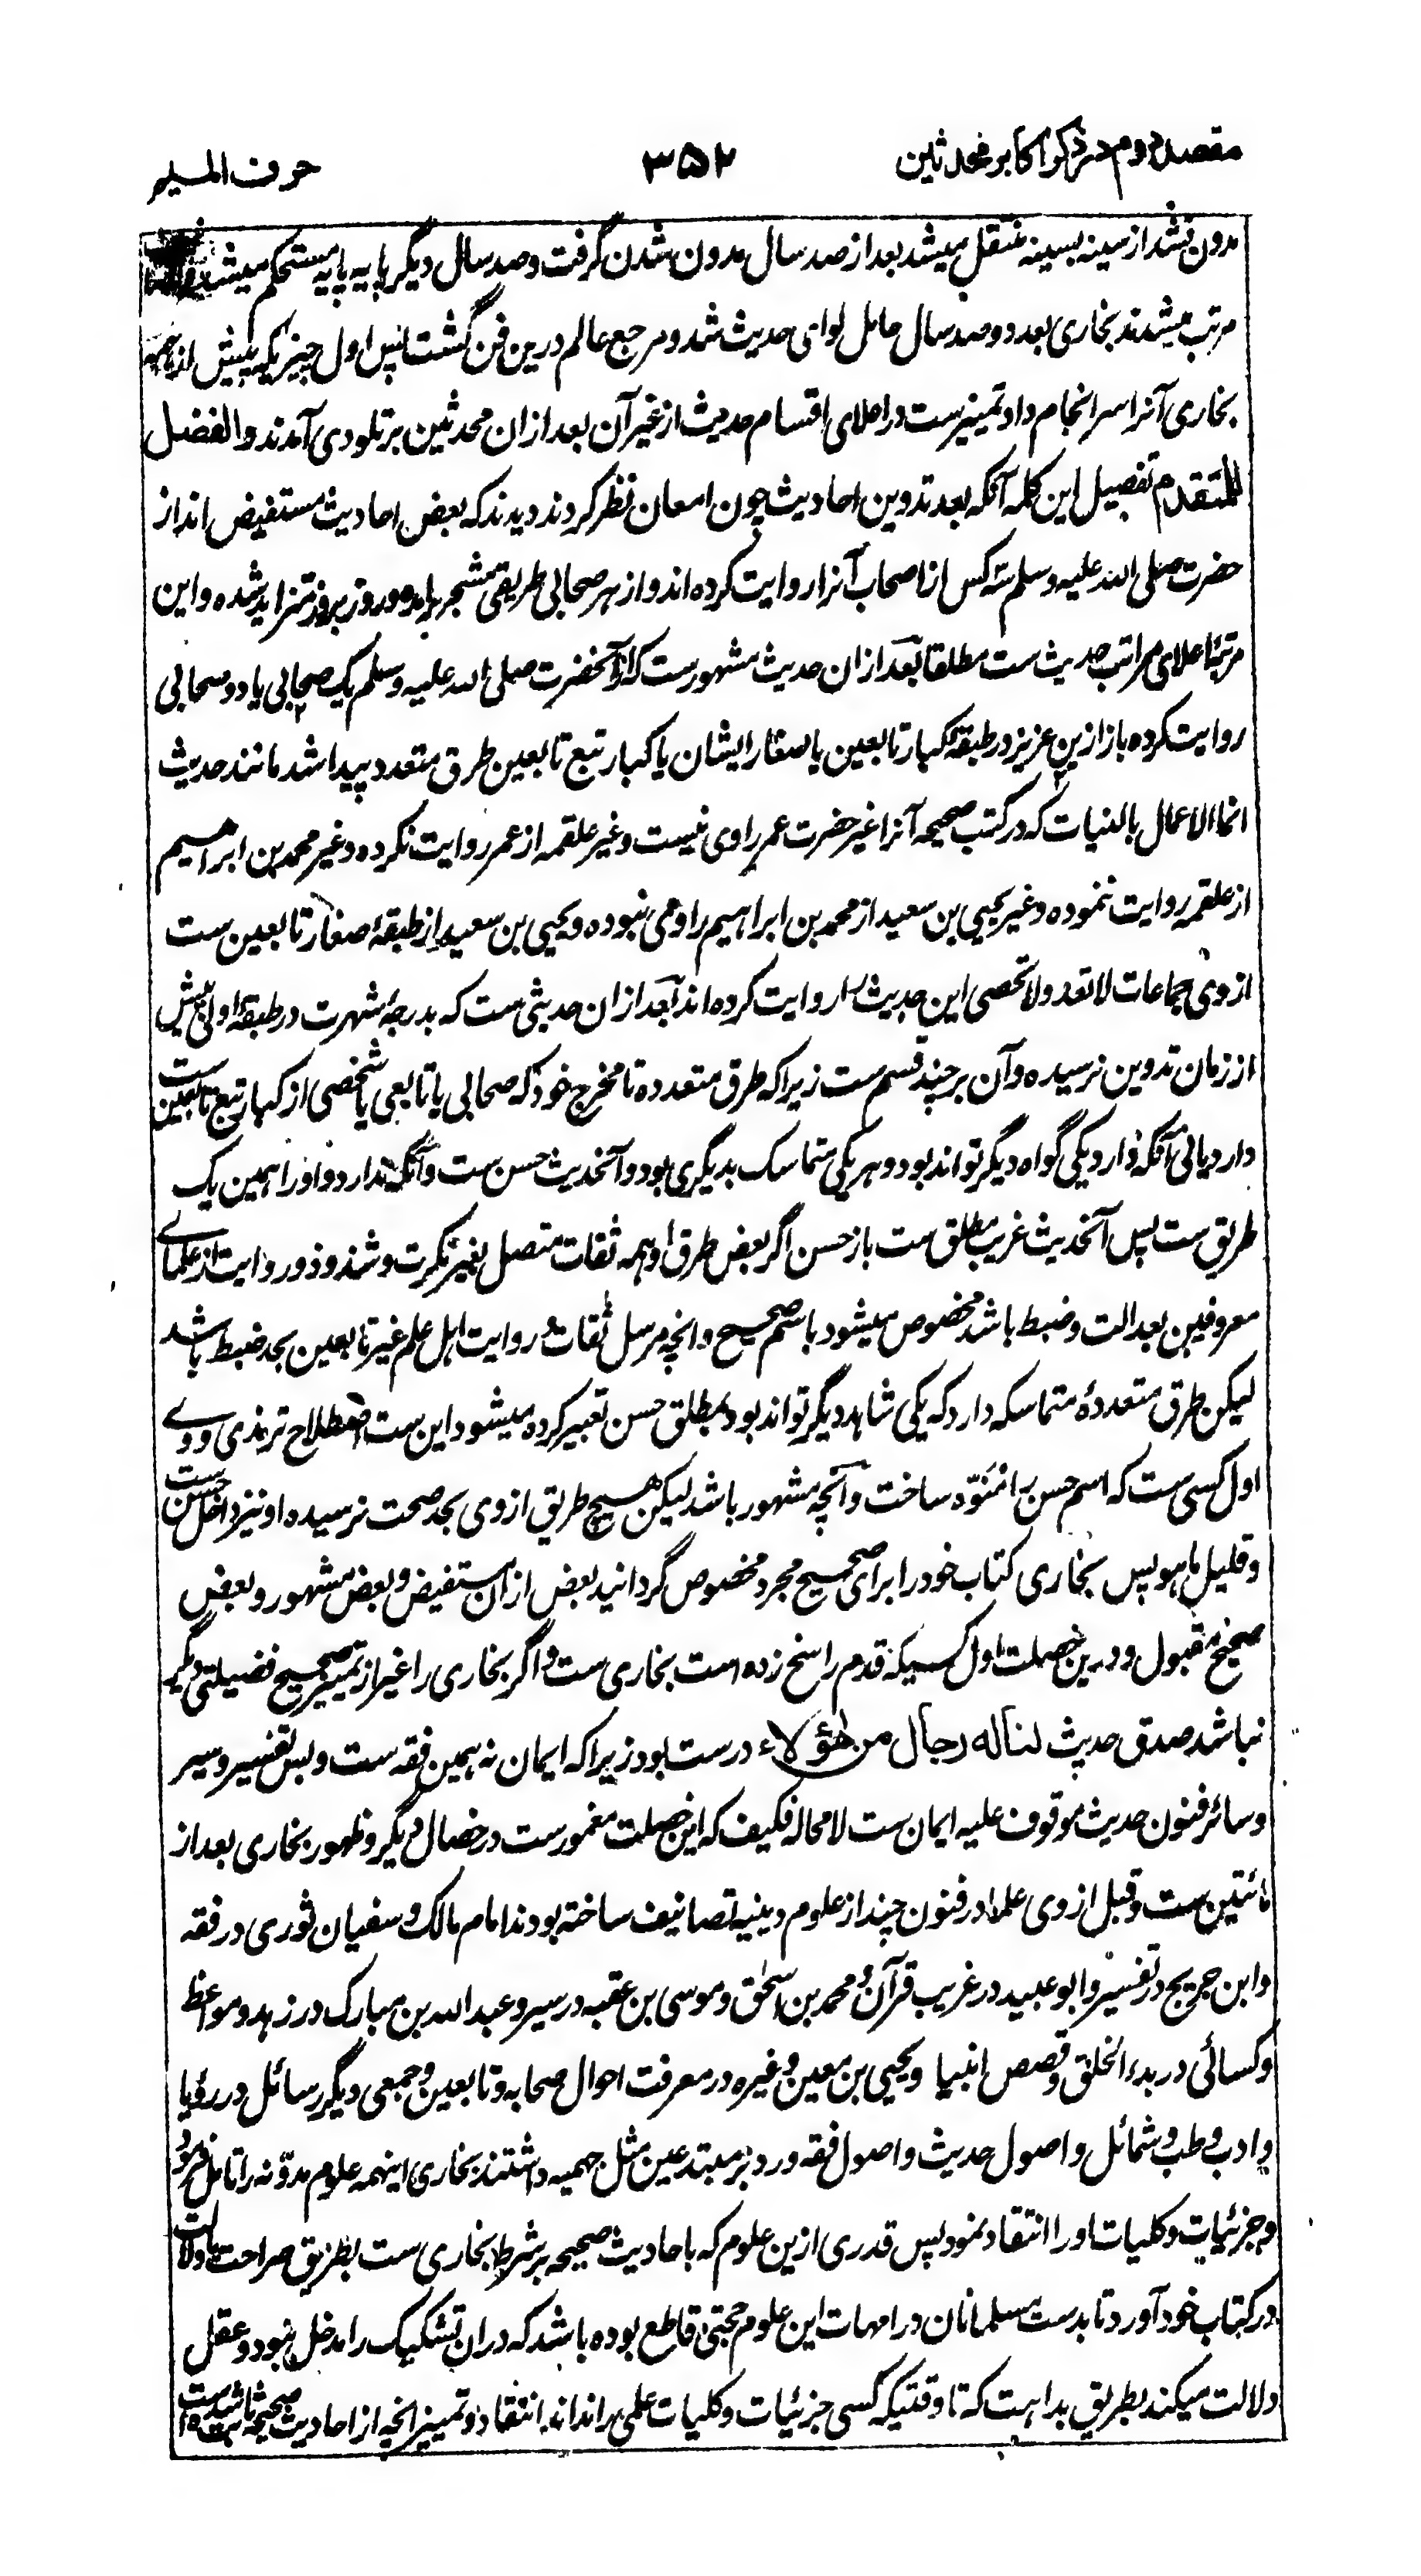 مقصد دوم در ذکر اکابر محدثین
۳۵۲
حرف المیم
مدون نشد از سینه بسینه منتقل میشد بعد از صد سال مدون شدن گرفت و صد سال دیگر پایه پایه مستحکم میشد
مرتب میشدند بخاری بعد دو صد سال حامل لوای حدیث شد و مرجع عالم درین فن گشت پس اول چیزیکه پیش از همه
بخاری آنرا سرانجام داد تمییزست در اعلای اقسام حدیث از غیر آن بعد ازان محدثین بر تلو وی آمدند والفضل
للمتقدم تفصیل این کلمه آنکه بعد تدوین احادیث چون امعان نظر کردند دیدند که بعض احادیث مستفیض اند از
حضرت صلی الله علیه وسلم سه کس از اصحاب آنرا روایت کرده اند و از هر صحابی طریقی متشجر برآمده و روز بروز متزاید شده و این
مرتبۀ اعلای مراتب حدیث ست مطلقا بعد ازان حدیث مشهورست که از آنحضرت صلی الله علیه وسلم یک صحابی یا دو صحابی
روایت کرده باز ازین عزیز در طبقۀ کبار تابعین یا صغار ایشان یا کبار تبع تابعین طرق متعدد پیدا شد مانند حدیث
انما الاعمال بالنیات که در کتب صحیحه آنرا غیر حضرت عمر راوی نیست و غیر علقمه از عمر روایت نکرده و غیر محمد بن ابراهیم
از علقمه روایت ننموده و غیر یحیی بن سعید از محمد بن ابراهیم راوی نبوده و یحیی بن سعید از طبقۀ صغار تابعین ست
از وی جماعات لا تعد ولا تحصی این حدیث را روایت کرده اند بعد ازان حدیثی ست که بدرجۀ شهرت در طبقۀ اولی پیش
از زمان تدوین نرسیده و آن بر چند قسم ست زیراکه طرق متعدده تا مخرج خود که صحابی یا تابعی یا شخصی از کبار تبع تابعین ست
دارد یا نی آنکه دارد یکی گواه دیگر تواند بود و هر یکی متماسک بدیگری بود و آنحدیث حسن ست و آنکه ندارد و او را همین یک
طریق ست پس آنحدیث غریب مطلق ست باز حسن اگر بعض طرق او همه ثقات متصل بغیر نکرت و شذوذ و روایت از علمای
معروفین بعدالت و ضبط باشد مخصوص میشود باسم صحیح و انچه مرسل ثقات و روایت اهل علم غیر تابعین بحد ضبط باشد
لیکن طرق متعددۀ متماسکه دارد که یکی شاهد دیگر تواند بود بمطلق حسن تعبیر کرده میشود این ست اصطلاح ترمذی و وے
اول کسی ست که اسم حسن را مُنَوَّه ساخت و آنچه مشهور باشد لیکن هیچ طریق از وی بحد صحت نرسیده او نیز داخل حسن ست
و قلیل ما هو پس بخاری کتاب خود را برای صحیح مجرد مخصوص گردانید بعض ازان مستفیض و بعض مشهور و بعض
صحیح مقبول و درین خصلت اول کسیکه قدم راسخ زده است بخاری ست و اگر بخاری را غیر از تمییز صحیح فضیلتی دیگر
نباشد صدق حدیث لناله رجال من هٰؤلاء درست بود زیراکه ایمان نه همین فقه ست و بس تفسیر و سیر
و سائر فنون حدیث موقوف علیه ایمان ست لا محاله فکیف که این خصلت مغمورست در خصال دیگر و ظهور بخاری بعد از
مائتین ست و قبل از وی علما در فنون چند از علوم دینیه تصانیف ساخته بودند امام مالک و سفیان ثوری در فقه
و ابن جریج در تفسیر و ابو عبید در غریب قرآن و محمد بن اسحٰق و موسی بن عقبه در سیر و عبد الله بن مبارک در زهد و مواعظ
و کسائی در بدء الخلق و قصص انبیا و یحیی بن معین و غیره در معرفت احوال صحابه و تابعین و جمعی دیگر رسائل در رؤیا
و ادب و طب و شمائل و اصول حدیث و اصول فقه و رد بر مبتدعین مثل جهمیه داشتند بخاری اینهمه علوم مدوّنه را تامل فرمود
و جزئیات و کلیات او را انتقاد نمود پس قدری ازین علوم که باحادیث صحیحه بر شرط بخاری ست بطریق صراحت یا دلالت
در کتاب خود آورد تا بدست مسلمانان در امهات این علوم حجتی قاطع بوده باشد که دران تشکیک را مدخل نبود و عقل
دلالت میکند بطریق بداهت که تا وقتیکه کسی جزئیات و کلیات علمی را نداند انتقاد و تمییز انچه از احادیث صحیحه ثابت ست